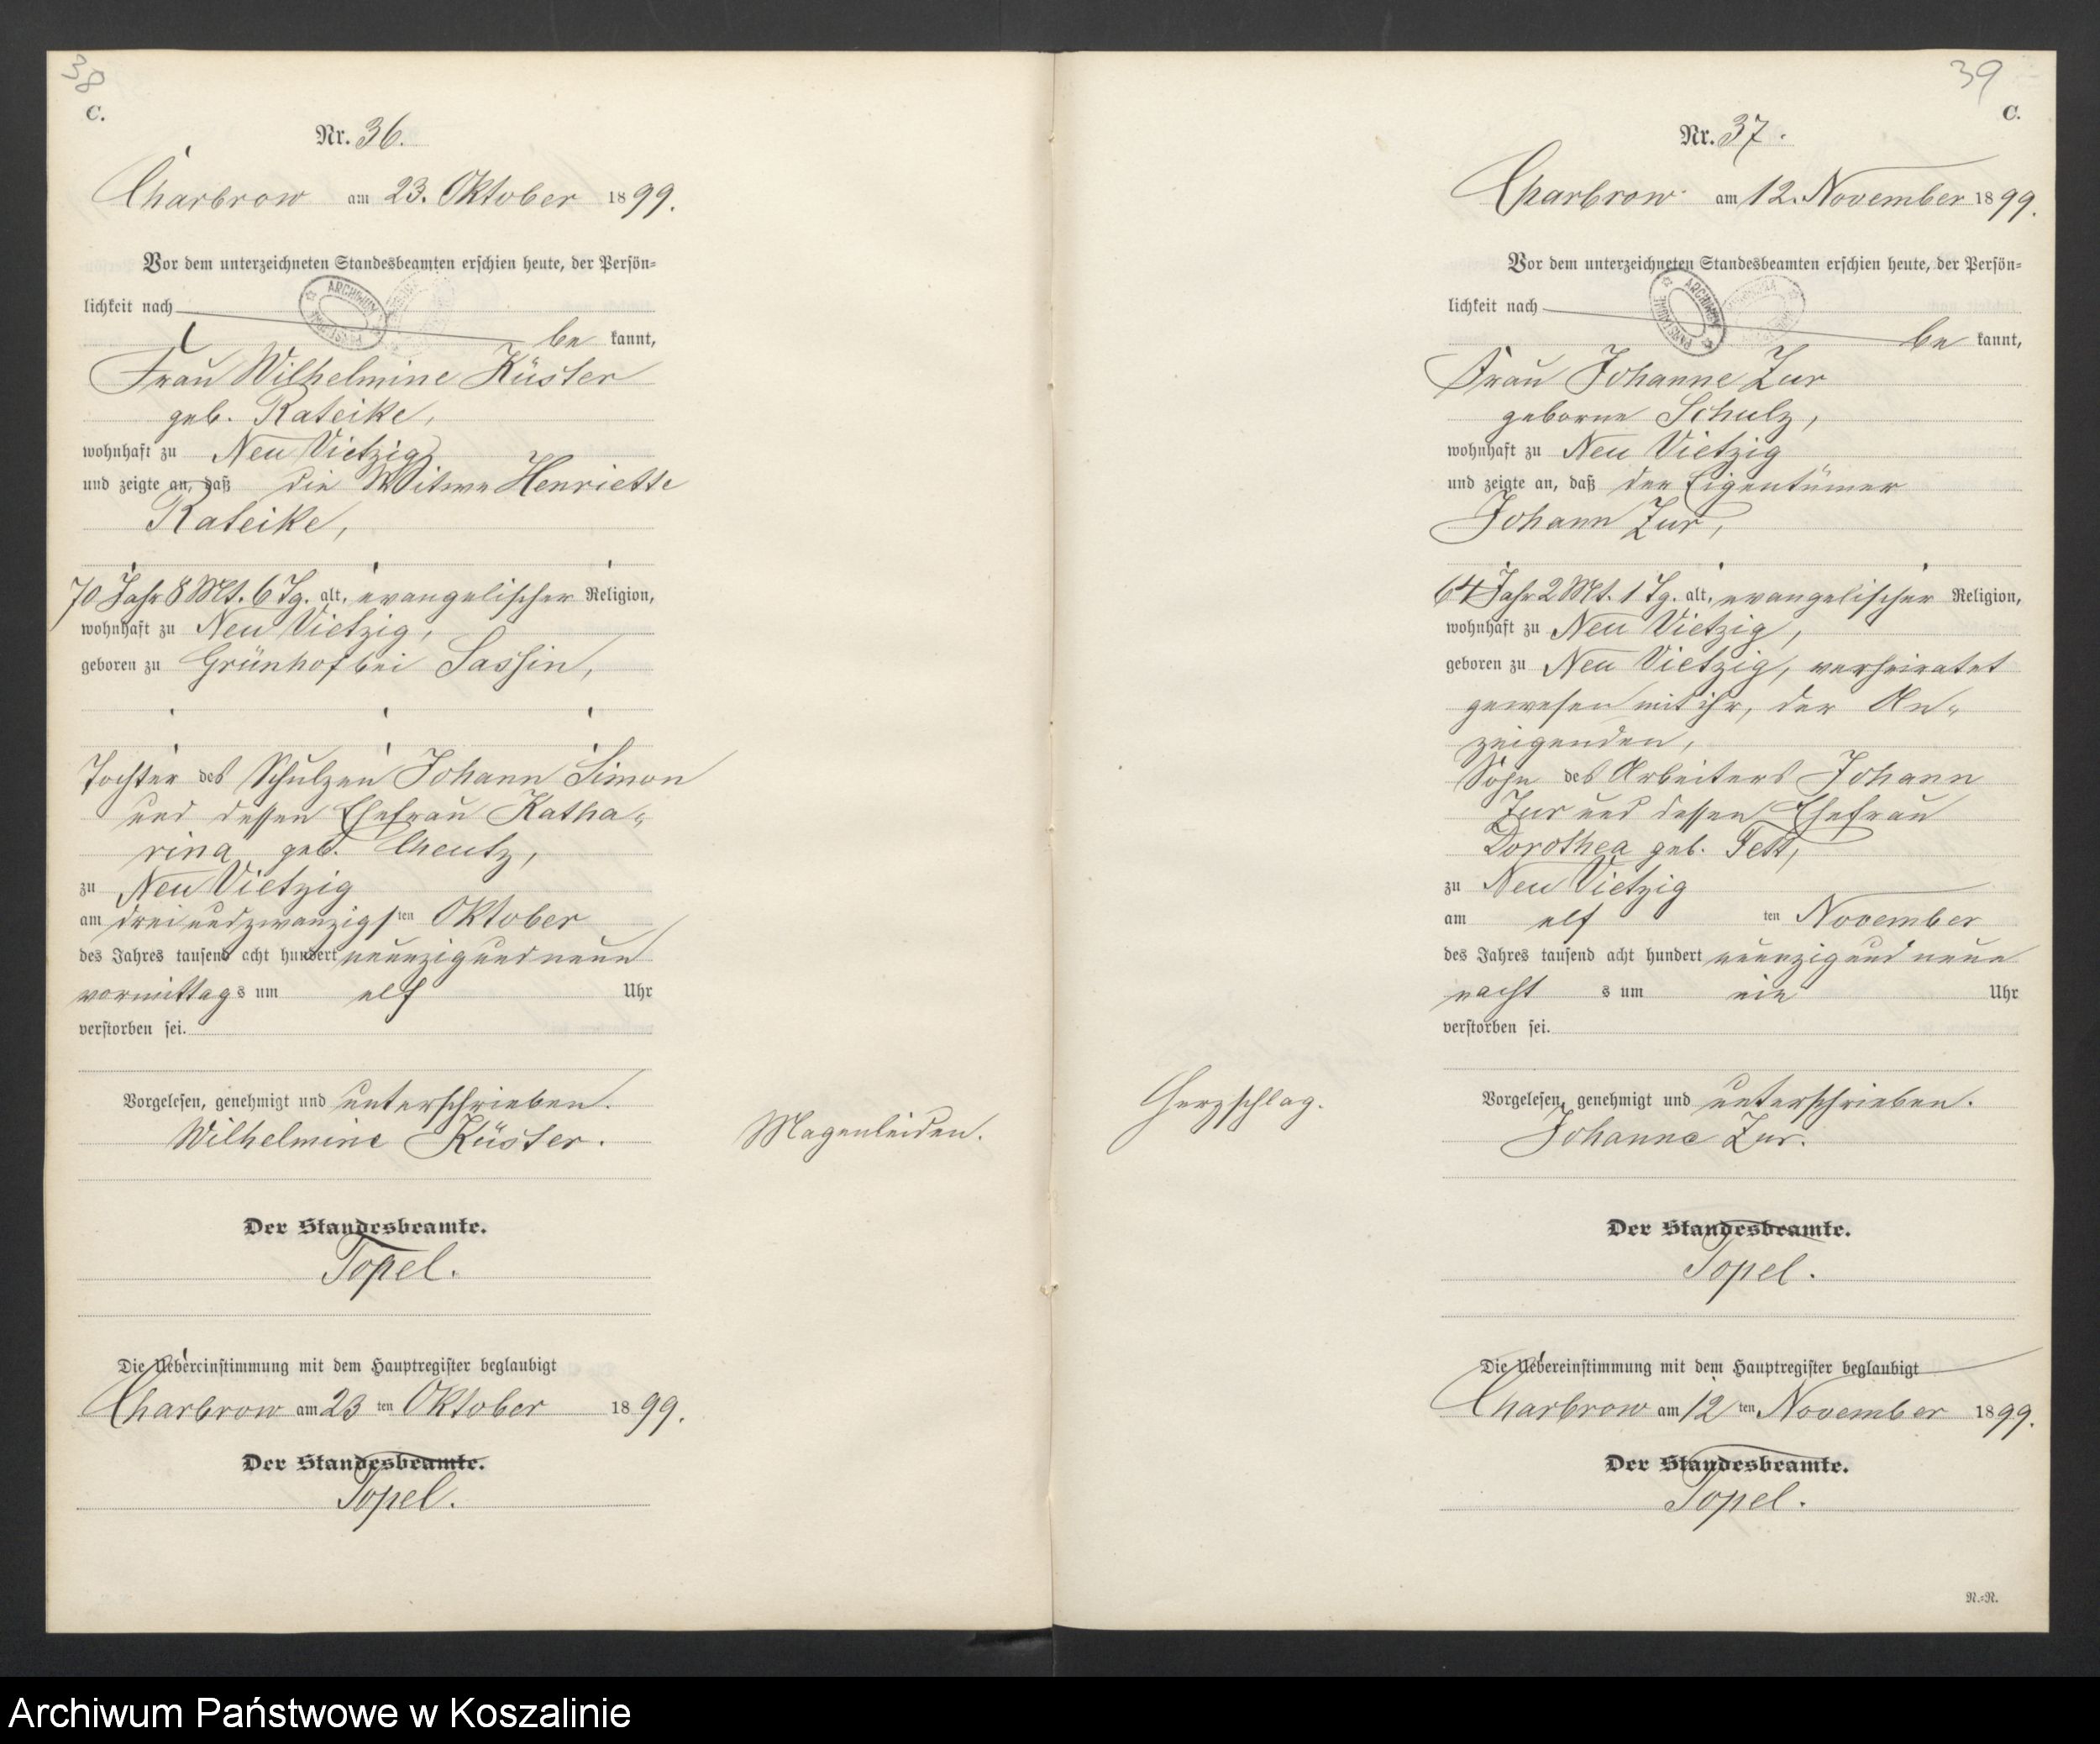 38
C.
Nr. 36.
Charbrow am 23. Oktober 1899.
Vor dem unterzeichneten Standesbeamten erschien heute, der Persön=
lichkeit nach
be kannt,
Frau Wilhelmine Küster
geb. Rateike,
wohnhaft zu Neu Vietzig
und zeigte an, daß die Witwe Henriette
Rateike,
70 Jahr 8 Mt. 6 Tg. alt, evangelischer Religion,
wohnhaft zu Neu Vietzig,
geboren zu Grünhof bei Sassin,
Tochter des Schulzen Johann Simon
und dessen Ehefrau Katha=
rina geb. Cheutz,
zu Neu Vietzig
am dreiundzwanzigsten Oktober
des Jahres tausend acht hundert neunzig und neun
vormittags um elf Uhr
verstorben sei.
Vorgelesen, genehmigt und unterschrieben.
Wilhelmine Küster.
Magenleiden.
Der Standesbeamte.
Topel.
Die Uebereinstimmung mit dem Hauptregister beglaubigt
Charbrow am 23 ten Oktober 1899.
Der Standesbeamte.
Topel.
39
C.
Nr. 37.
Charbrow am 12. November 1899.
Vor dem unterzeichneten Standesbeamten erschien heute, der Persön=
lichkeit nach
be kannt,
Frau Johanne Zur
geborne Schulz,
wohnhaft zu Neu Vietzig
und zeigte an, daß der Eigentümer
Johann Zur,
64 Jahr 2 Mt. 1 Tg. alt, evangelischer Religion,
wohnhaft zu Neu Vietzig,
geboren zu Neu Vietzig, verheiratet
gewesen mit ihr, der An=
zeigenden,
Sohn des Arbeiters Johann
Zur und dessen Ehefrau
Dorothea geb. Fett,
zu Neu Vietzig
am elf ten November
des Jahres tausend acht hundert neunzig und neun
nacht s um ein Uhr
verstorben sei.
Herzschlag.
Vorgelesen, genehmigt und unterschrieben.
Johanne Zur.
Der Standesbeamte.
Topel.
Die Uebereinstimmung mit dem Hauptregister beglaubigt
Charbrow am 12 ten November 1899.
Der Standesbeamte.
Topel.
N.=N.
Archiwum Państwowe w Koszalinie